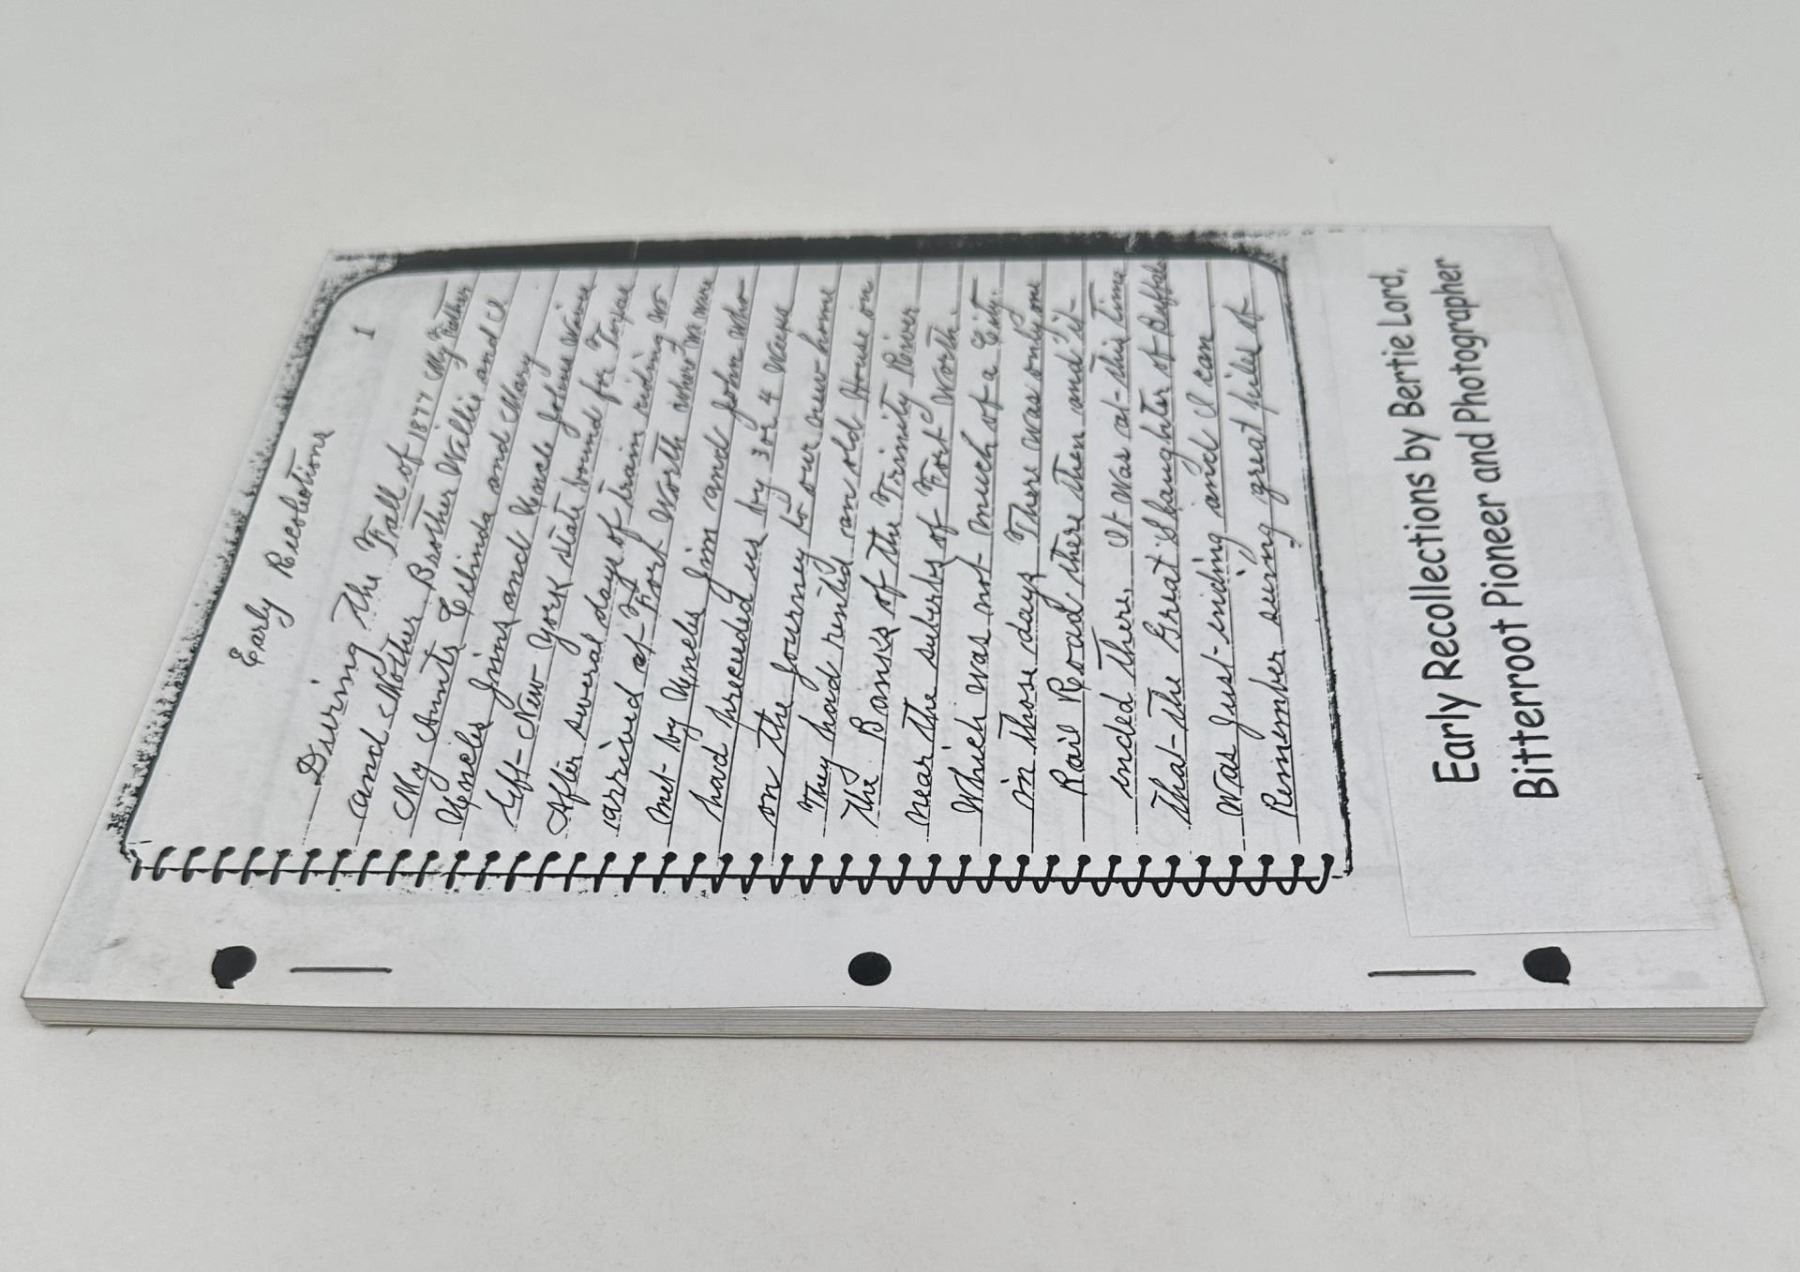 Early Recolections
1
During the Fall of 1877 My Father
and Mother Brother Willie and I
My Aunts Celinda and Mary
Uncles Jims and Uncle Johns Wives
left New York state bound for Texas
After several days of train riding we
arrived at Fort Worth where we were
met by Uncles Jim and John who
had preceeded us by 3 or 4 Ways
on the Journey to our new home
They had rented an old House on
the Banks of the Trinity River
near the suburbs of Fort Worth.
Which was not much of a City.
in those days There was only one
Rail Road there then and it
ended there. It was at this time
that the Great Slaughter of Buffalo
Was Just ending and I can
Remember seeing great piles of
Early Recollections by Bertie Lord,
Bitterroot Pioneer and Photographer